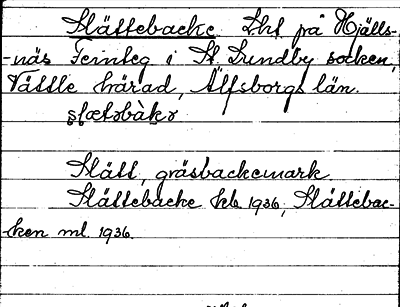 Slättebacke Lht på Hjälls-
-näs Feinteg i St. Lundby socken,
Vättle härad, Älfsborgs län.
slætəbàkə
Slätt, gräsbackemark
Slättebacke kb 1936, Slättebac-
-ken ml. 1936.